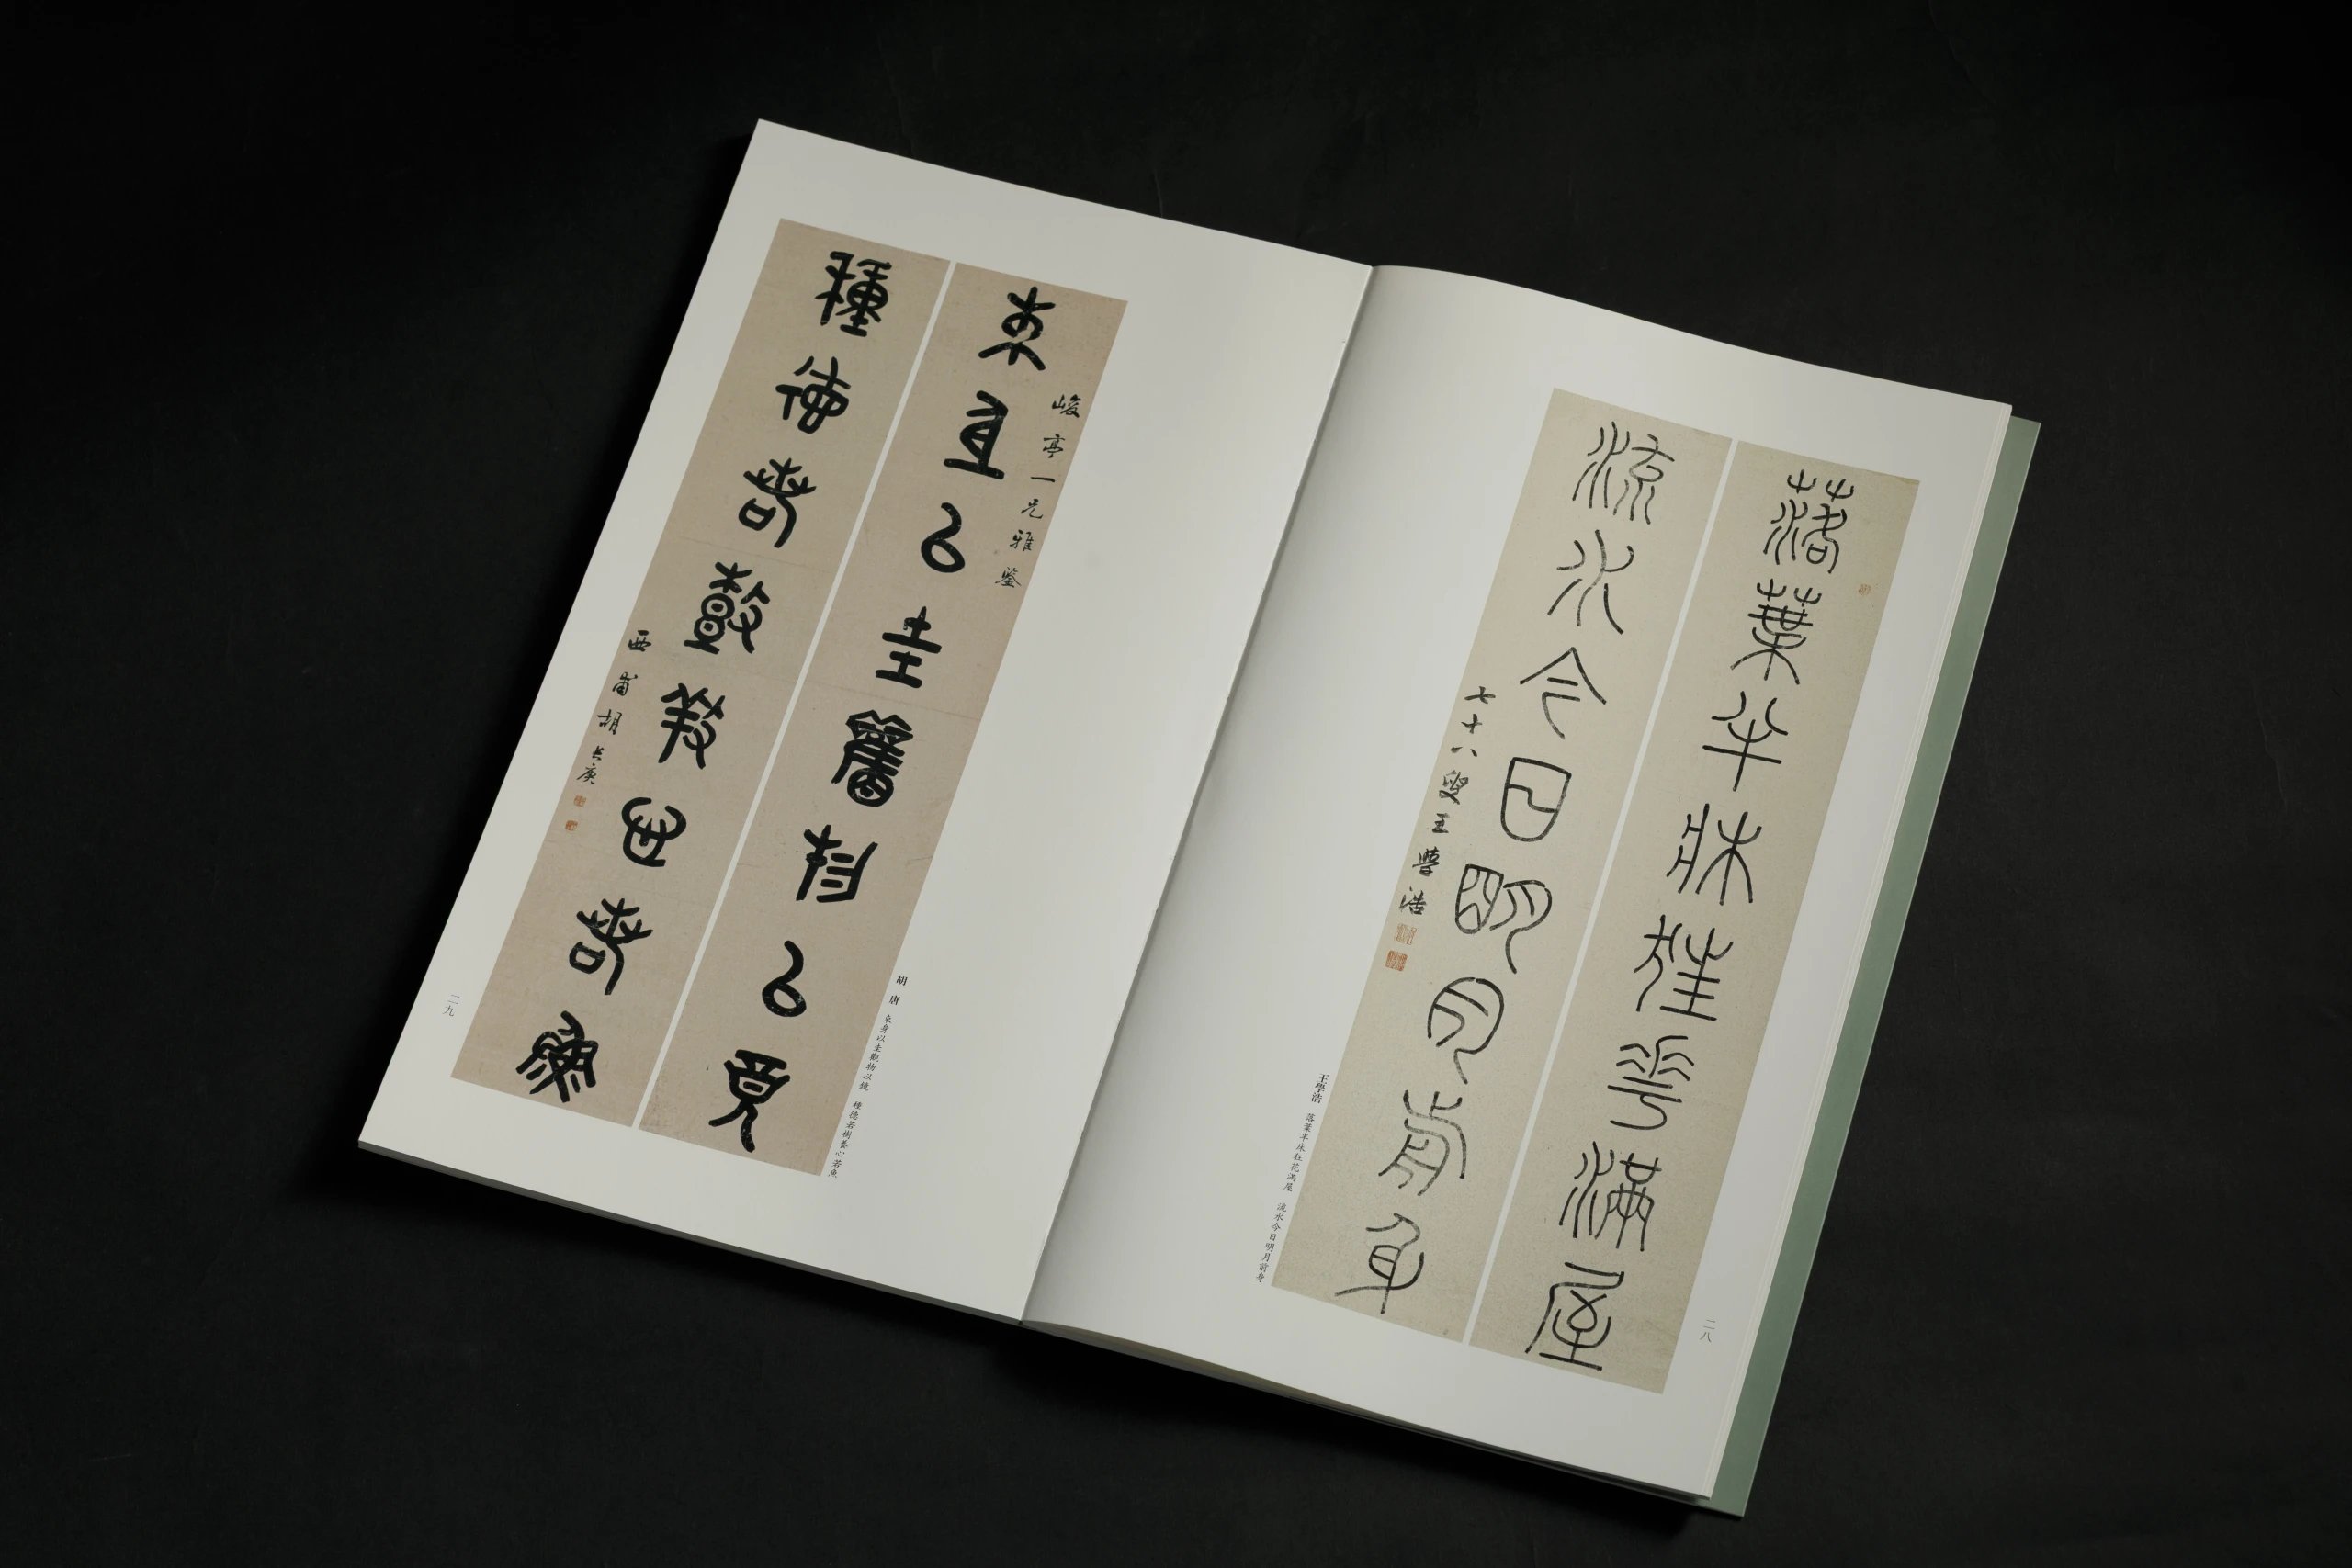 落葉半牀狂花滿屋
流水今日明月前身
七十八叟王學浩
王學浩 落葉半床狂花滿屋 流水今日明月前身
二八
峻亭一兄雅鑒
束身以圭觀物以鏡
種德若樹養心若魚
西甫胡長庚
胡唐 束身以圭觀物以鏡 種德若樹養心若魚
二九